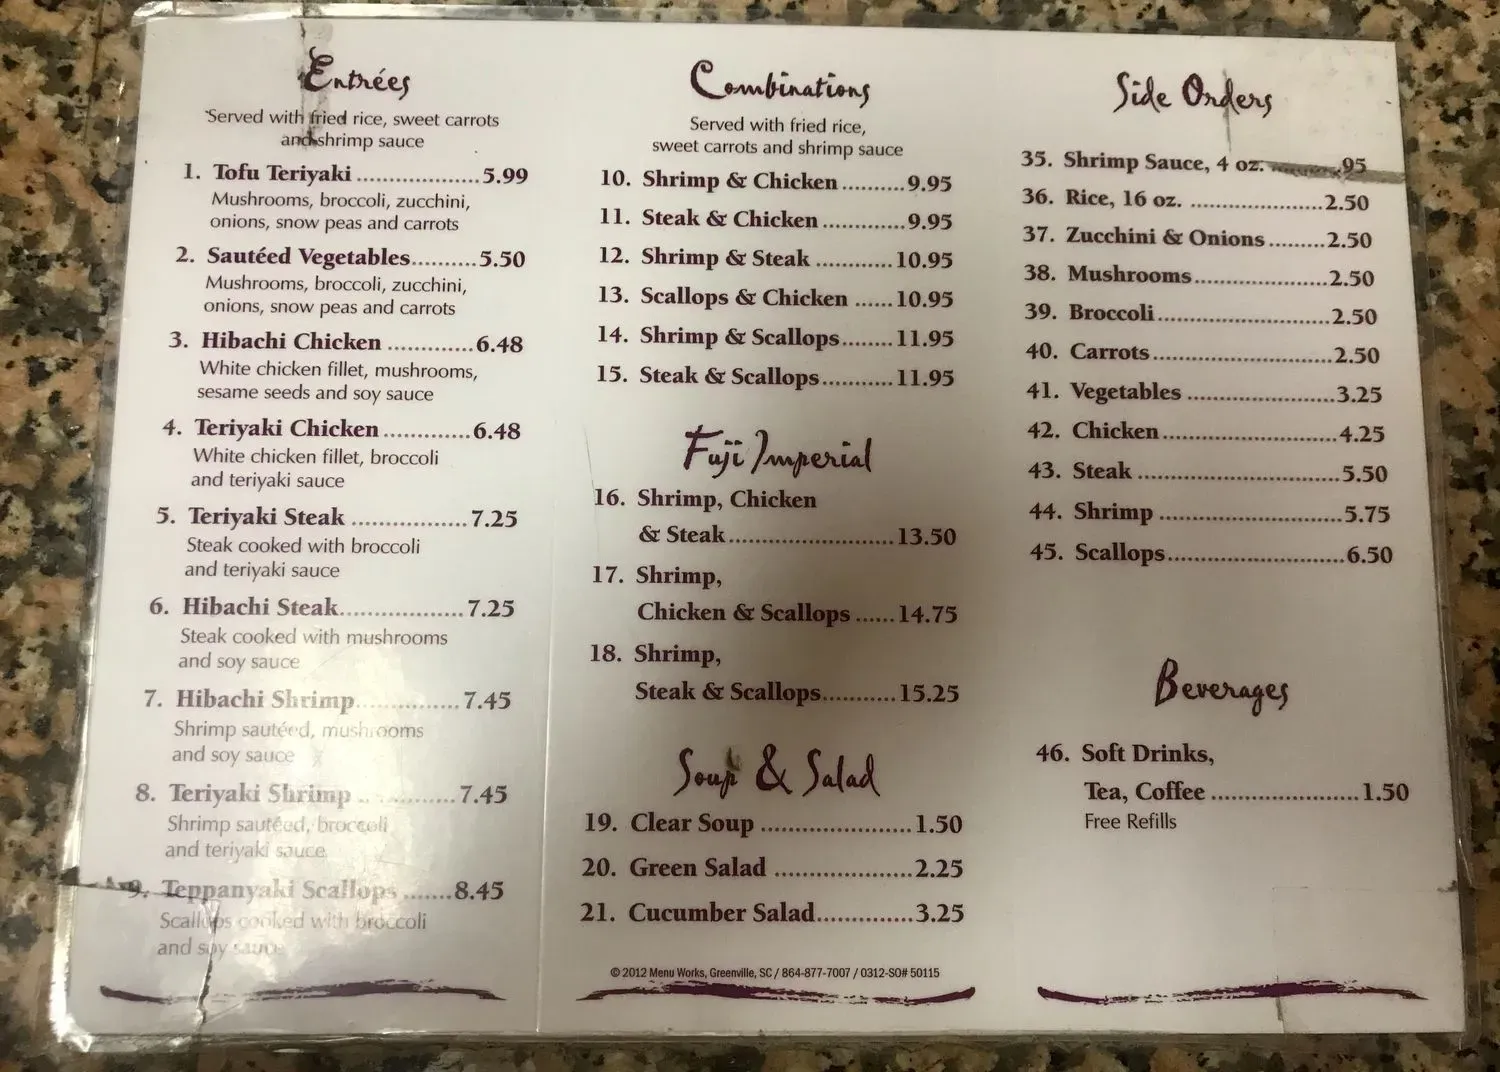 Entrées
Served with fried rice, sweet carrots
and shrimp sauce
1. Tofu Teriyaki ...................5.99
Mushrooms, broccoli, zucchini,
onions, snow peas and carrots
2. Sautéed Vegetables..........5.50
Mushrooms, broccoli, zucchini,
onions, snow peas and carrots
3. Hibachi Chicken .............6.48
White chicken fillet, mushrooms,
sesame seeds and soy sauce
4. Teriyaki Chicken .............6.48
White chicken fillet, broccoli
and teriyaki sauce
5. Teriyaki Steak ..................7.25
Steak cooked with broccoli
and teriyaki sauce
6. Hibachi Steak...................7.25
Steak cooked with mushrooms
and soy sauce
7. Hibachi Shrimp................7.45
Shrimp sautéed, mushrooms
and soy sauce
8. Teriyaki Shrimp ...............7.45
Shrimp sautéed, broccoli
and teriyaki sauce
9. Teppanyaki Scallops .......8.45
Scallops cooked with broccoli
and soy sauce
Combinations
Served with fried rice,
sweet carrots and shrimp sauce
10. Shrimp & Chicken ..........9.95
11. Steak & Chicken .............9.95
12. Shrimp & Steak ............10.95
13. Scallops & Chicken ......10.95
14. Shrimp & Scallops........11.95
15. Steak & Scallops...........11.95
Fuji Imperial
16. Shrimp, Chicken
& Steak.........................13.50
17. Shrimp,
Chicken & Scallops ......14.75
18. Shrimp,
Steak & Scallops...........15.25
Soup & Salad
19. Clear Soup .......................1.50
20. Green Salad .....................2.25
21. Cucumber Salad..............3.25
© 2012 Menu Works, Greenville, SC / 864-877-7007 / 0312-SO# 50115
Side Orders
35. Shrimp Sauce, 4 oz. ...........95
36. Rice, 16 oz. .....................2.50
37. Zucchini & Onions .........2.50
38. Mushrooms.....................2.50
39. Broccoli...........................2.50
40. Carrots............................2.50
41. Vegetables .......................3.25
42. Chicken...........................4.25
43. Steak ................................5.50
44. Shrimp ............................5.75
45. Scallops...........................6.50
Beverages
46. Soft Drinks,
Tea, Coffee ......................1.50
Free Refills